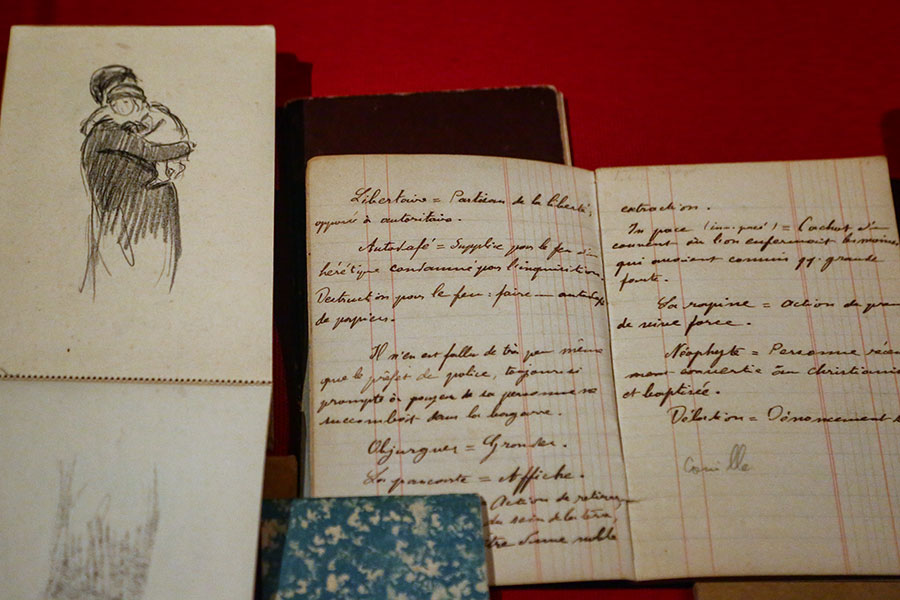 Libertaire = Partisan de la liberté,
opposé à autoritaire.
Autodafé = Supplice par le feu d'un
hérétique condamné par l'inquisition
Destruction par le feu : faire un autodafé
de papiers.
Il n'en est fallu de très peu même
que le préfet de police, toujours si
prompte à payer de sa personne ne
succombât dans la bagarre.
Objurguer = Gronder.
La pancarte = Affiche.
= Action de retirer
du sein de la terre,
être d'une noble
extraction.
In pace (ina-pacé) = Cachot d'un
couvent où l'on enfermait les moines
qui avaient commis qq. grande
faute.
La rapine = action de
de vive force.
Néophyte = Personne récem
ment convertie au christianis
et baptisée.
Délation = Dénoncement
Camille